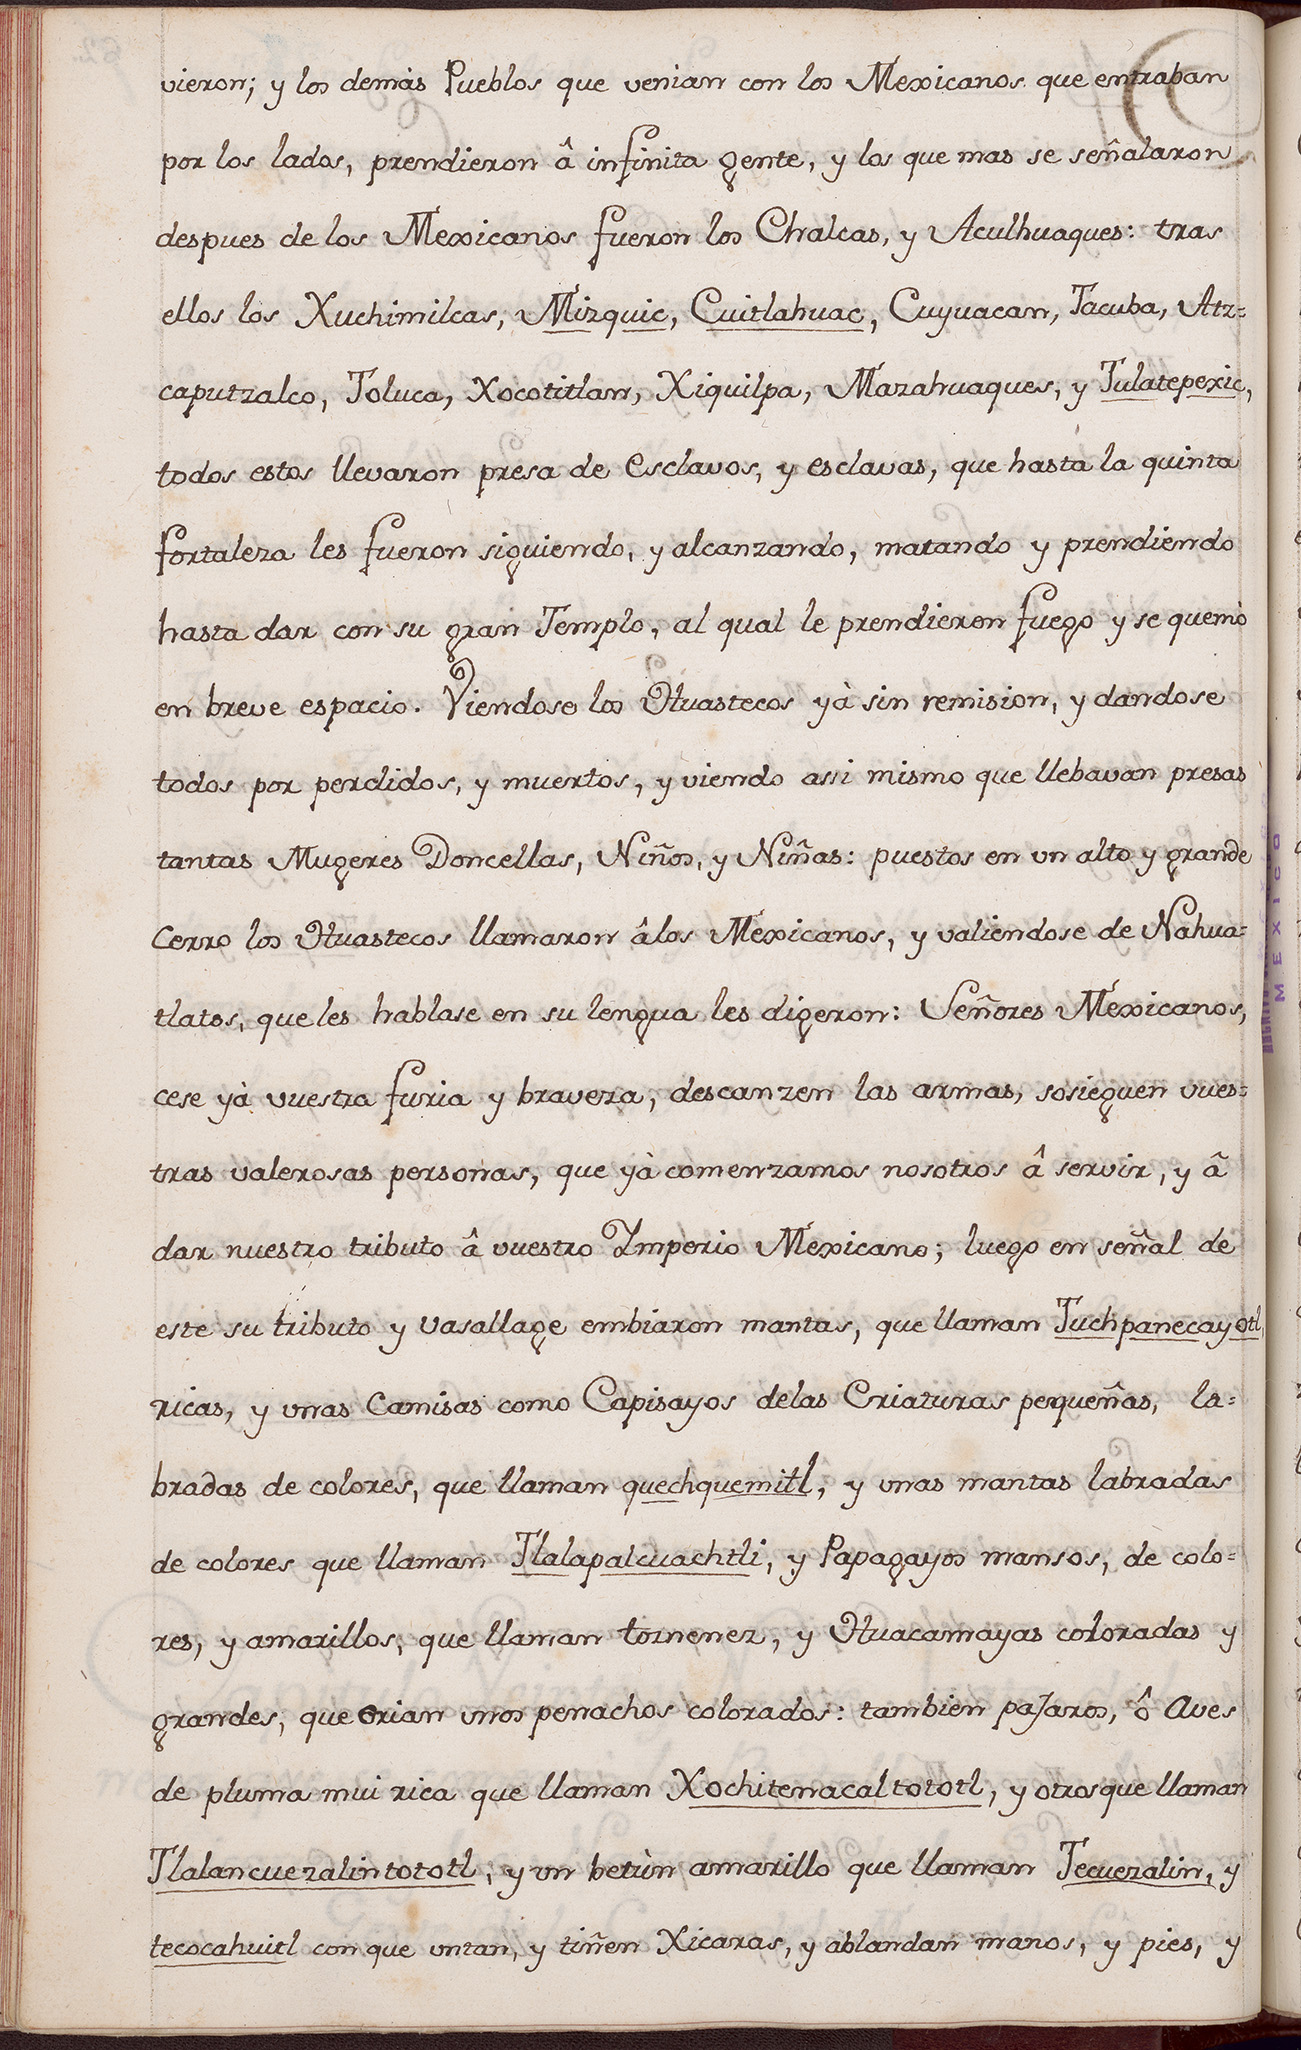 vieron; y los demàs Pueblos que venian con los Mexicanos que entraban
por los lados, prendieron â infinita gente, y los que mas se señalaron
despues de los Mexicanos fueron los Chalcas, y Aculhuaques: tras
ellos los Xuchimilcas, Mizquic, Cuitlahuac, Cuyuacan, Tacuba, Atz=
caputzalco, Toluca, Xocotitlan, Xiquilpa, Mazahuaques, y Tulatepexic,
todos estos llevaron presa de Esclavos, y esclavas, que hasta la quinta
fortaleza les fueron siguiendo, y alcanzando, matando y prendiendo
hasta dar con su gran Templo, al qual le prendieron fuego y se quemò
en breve espacio. Viendose los Huastecos yà sin remision, y dandose
todos por perdidos, y muertos, y viendo assi mismo que llebavan presas
tantas Mugeres Doncellas, Niños, y Niñas: puestos en un alto y grande
Cerro los Huastecos llamaron âlos Mexicanos, y valiendose de Nahua=
tlatos, que les hablase en su lengua les digeron: Señores Mexicanos,
cese yà vuestra furia y braveza, descanzen las armas, sosieguen vues=
tras valerosas personas, que yà comenzamos nosotros â servir, y â
dar nuestro tributo â vuestro Imperio Mexicano; luego en señal de
este su tributo y vasallage embiaron mantas, que llaman Tuchpanecayotl,
ricas, y unas Camisas como Capisayos delas Criaturas pequeñas, la=
bradas de colores, que llaman quechquemitl, y unas mantas labradas
de colores que llaman Tlalapalcuachtli, y Papagayos mansos, de colo=
res, y amarillos, que llaman toznenez, y Huacamayas coloradas y
grandes, que crian unos penachos colorados: tambien pajaros, ô Aves
de pluma mui rica que llaman Xochitenacaltototl, y otros que llaman
Tlalancuezalintototl, y un betùn amarillo que llaman Tecuezalin, y
tecocahuitl con que untan, y tiñen Xicaras, y ablandan manos, y pies, y
MEXICO